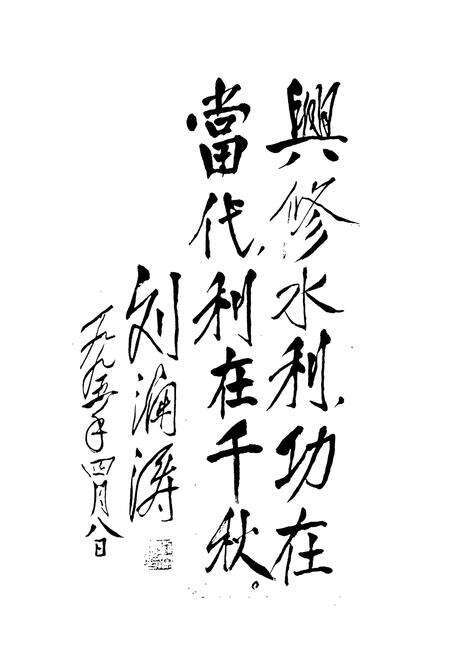 興修水利,功在
當代,利在千秋。
刘澜涛
一九九五年四月八日